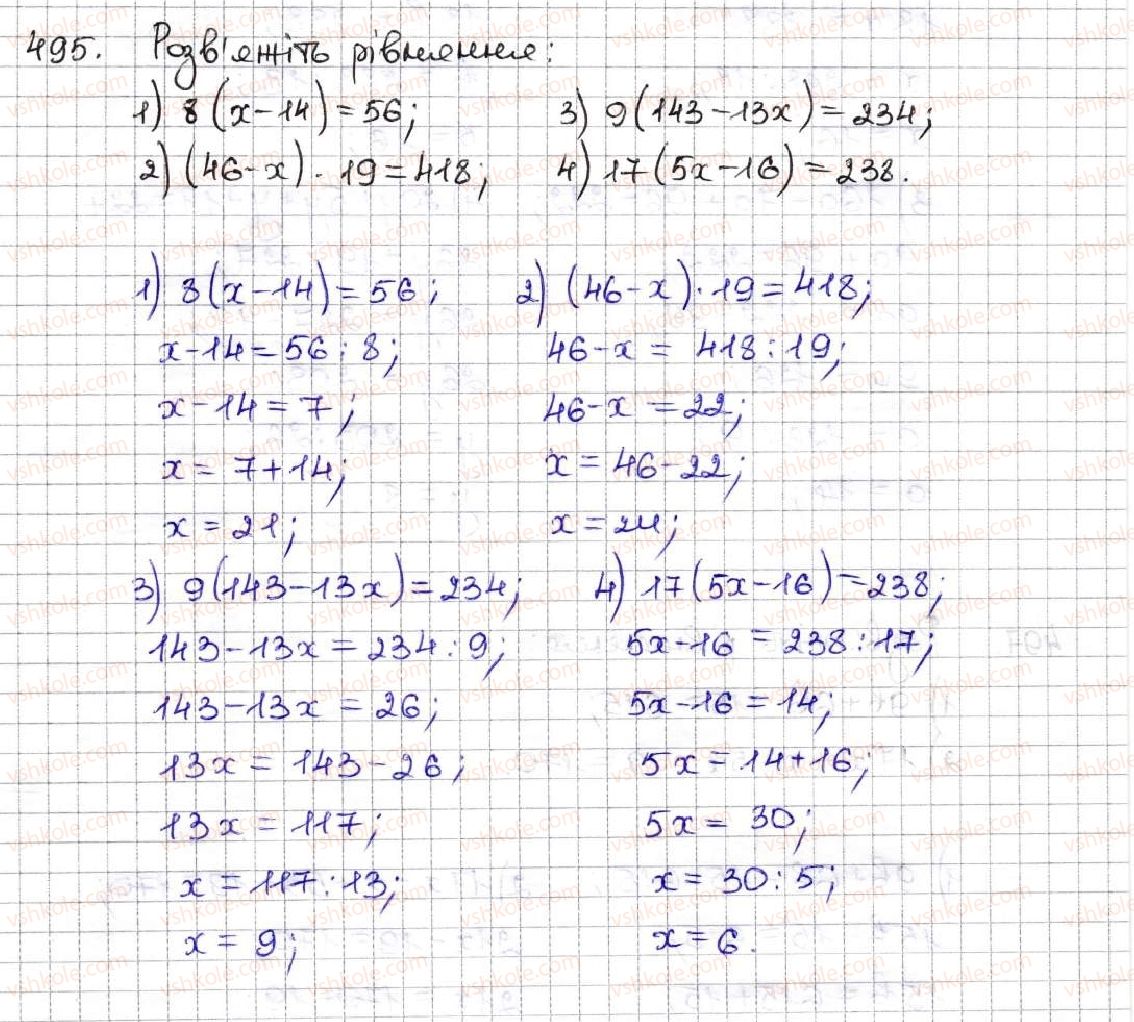 495. Розв'яжіть рівняння:
1) 8(x-14)=56;
3) 9(143-13x)=234;
2) (46-x)·19=418;
4) 17(5x-16)=238.
1) 8(x-14)=56;
2) (46-x)·19=418;
x-14=56:8;
46-x=418:19;
x-14=7;
46-x=22;
x=7+14;
x=46-22;
x=21;
x=24;
3) 9(143-13x)=234;
4) 17(5x-16)=238;
143-13x=234:9;
5x-16=238:17;
143-13x=26;
5x-16=14;
13x=143-26;
5x=14+16;
13x=117;
5x=30;
x=117:13;
x=30:5;
x=9;
x=6.
vshkole.com